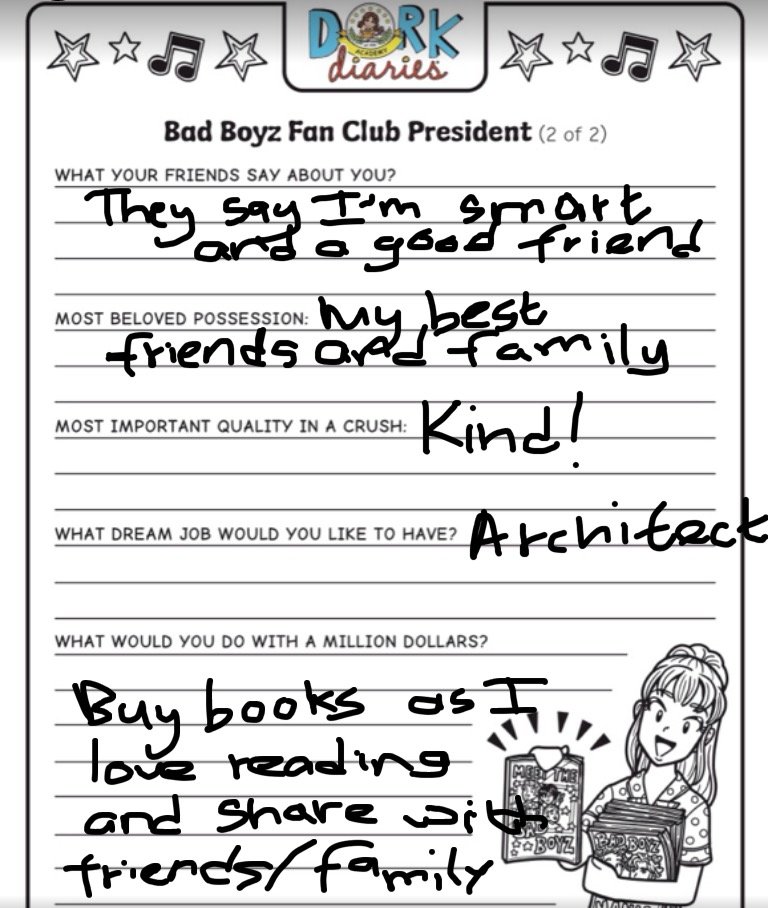 DORK
ACADEMY
diaries
Bad Boyz Fan Club President (2 of 2)
WHAT YOUR FRIENDS SAY ABOUT YOU?
They say I'm smart
and a good friend
MOST BELOVED POSSESSION: My best
friends and family
MOST IMPORTANT QUALITY IN A CRUSH: Kind!
WHAT DREAM JOB WOULD YOU LIKE TO HAVE? Architect
WHAT WOULD YOU DO WITH A MILLION DOLLARS?
Buy books as I
love reading
and share with
friends/family
MEET THE
BAD
BOYZ
BAD BOYZ